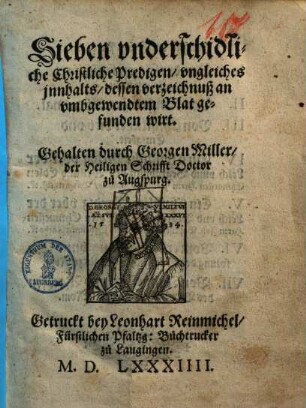 Sieben vnderschidli-
che Christliche Predigen/ vngleiches
jnnhalts/ dessen verzeichnuß an
vmbgewendtem Blat ge-
funden wirt.
Gehalten durch Georgen Miller/
der Heiligen Schrifft Doctor
zů Augspurg.
Getruckt bey Leonhart Reinmichel/
Fürstlichen Pfaltzg: Bůchtrucker
zů Laugingen.
M. D. LXXXIIII.